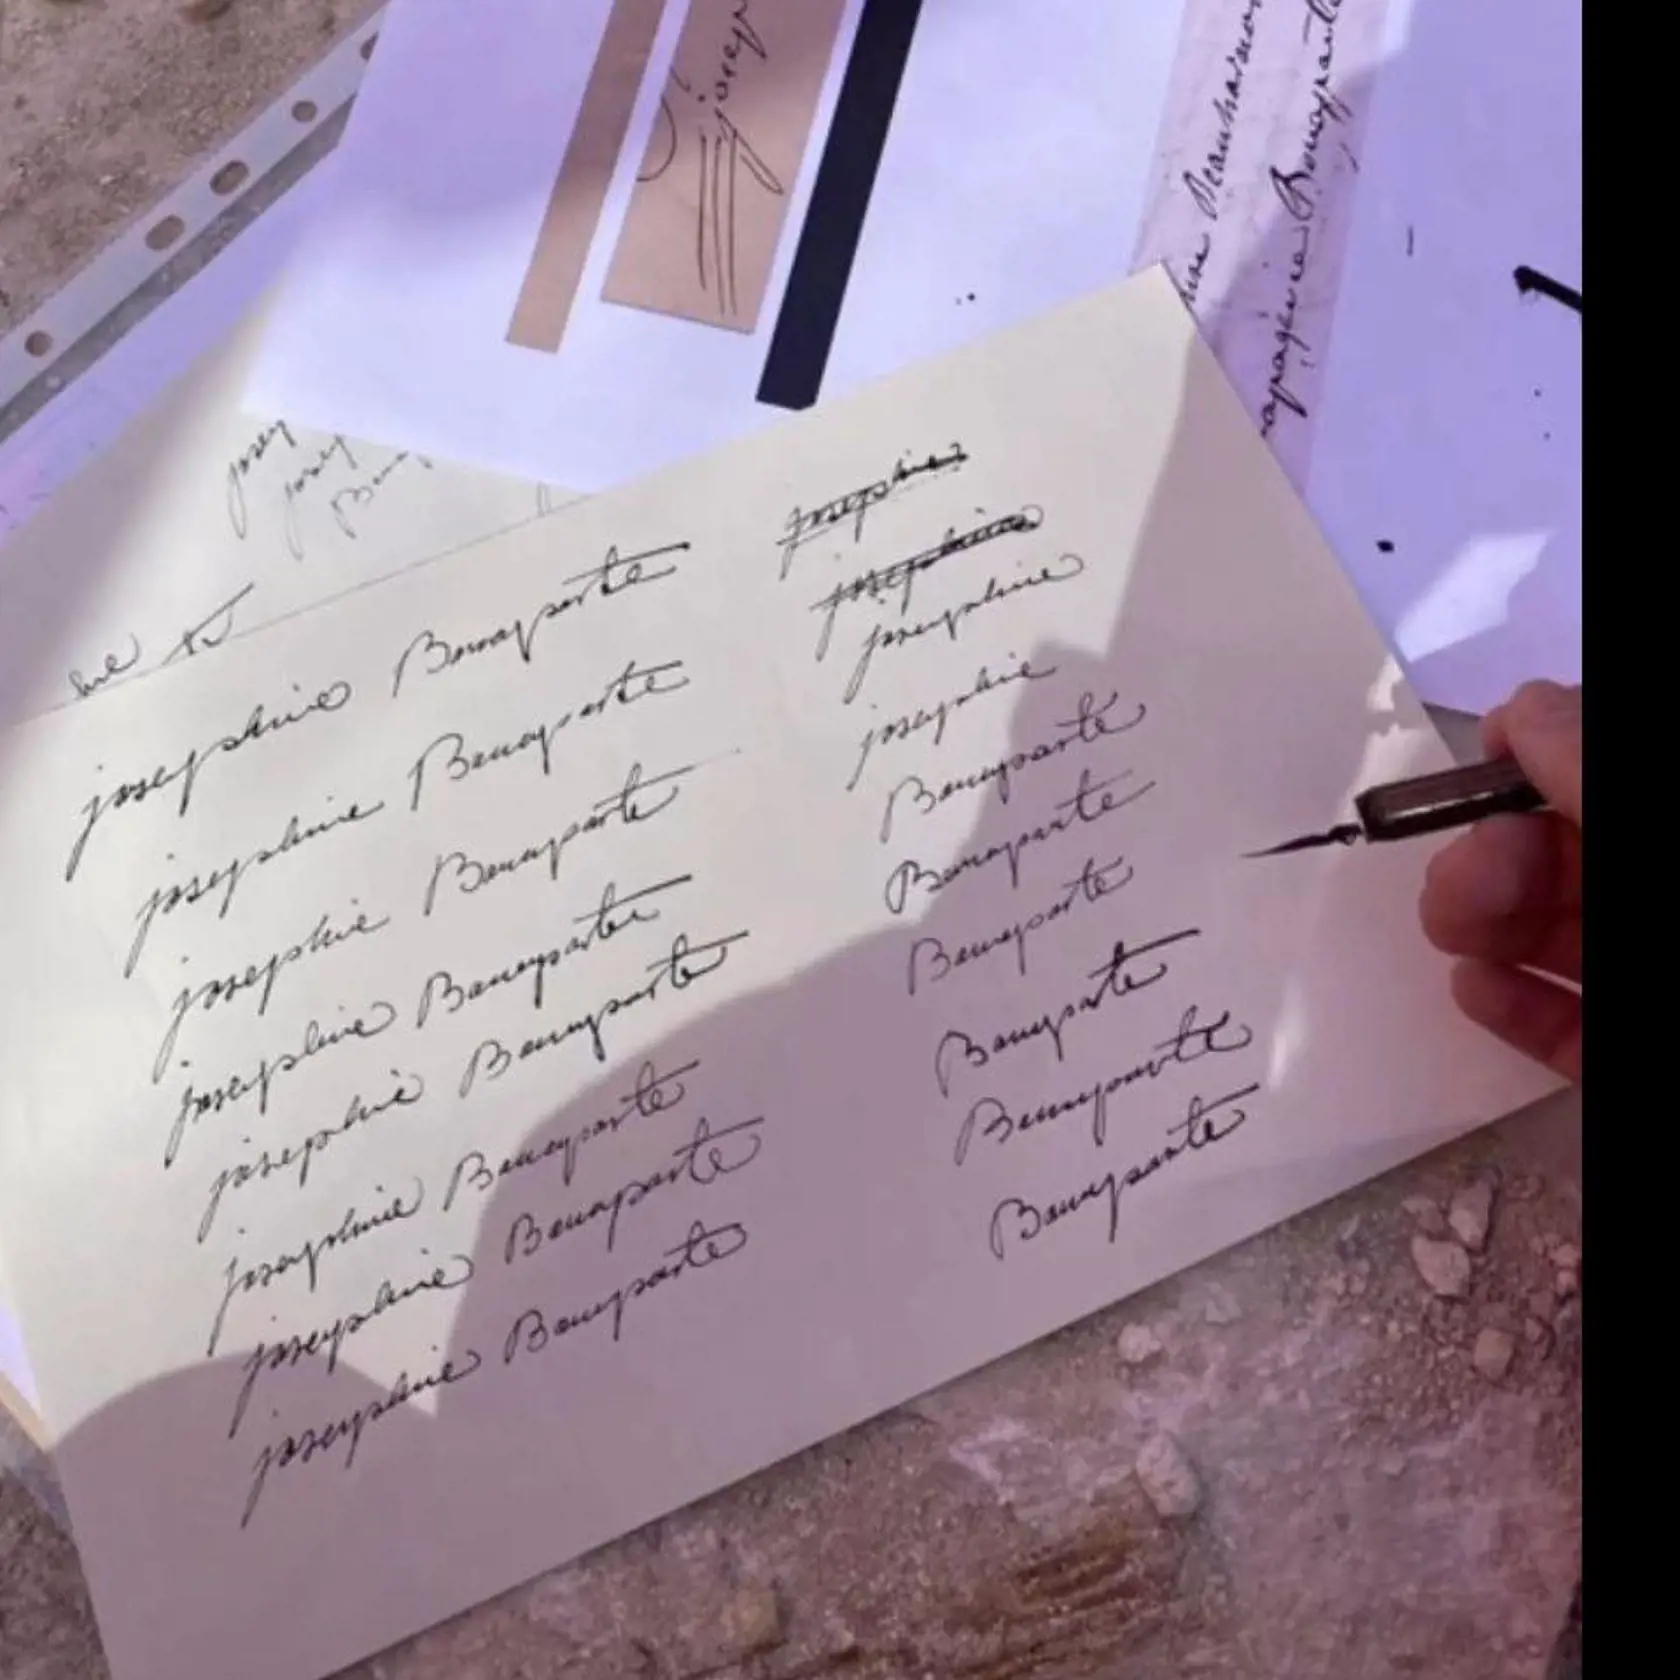 josep
Beauharnais
Bonaparte
josep
josep
Bona
josephine Bonaparte
josephine Bonaparte
josephine Bonaparte
josephine Bonaparte
josephine Bonaparte
josephine Bonaparte
josephine Bonaparte
josephine Bonaparte
josephine
josephine
josephine
josephine
Bonaparte
Bonaparte
Bonaparte
Bonaparte
Bonaparte
Bonaparte